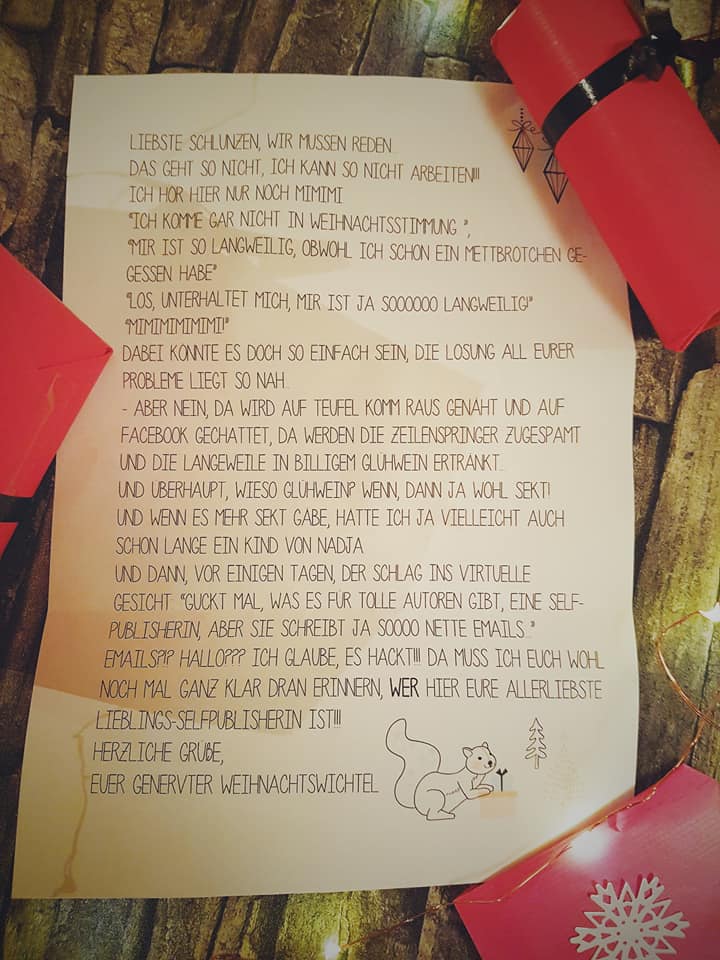 LIEBSTE SCHLUNZEN, WIR MUSSEN REDEN...
DAS GEHT SO NICHT, ICH KANN SO NICHT ARBEITEN!!!
ICH HOR HIER NUR NOCH MIMIMI
"ICH KOMME GAR NICHT IN WEIHNACHTSSTIMMUNG ",
"MIR IST SO LANGWEILIG, OBWOHL ICH SCHON EIN METTBROTCHEN GE-
GESSEN HABE"
"LOS, UNTERHALTET MICH, MIR IST JA SOOOOOO LANGWEILIG!"
"MIMIMIMIMIMI!"
DABEI KONNTE ES DOCH SO EINFACH SEIN, DIE LOSUNG ALL EURER
PROBLEME LIEGT SO NAH...
- ABER NEIN, DA WIRD AUF TEUFEL KOMM RAUS GENAHT UND AUF
FACEBOOK GECHATTET, DA WERDEN DIE ZEILENSPRINGER ZUGESPAMT
UND DIE LANGEWEILE IN BILLIGEM GLÜHWEIN ERTRANKT...
UND UBERHAUPT, WIESO GLÜHWEIN? WENN, DANN JA WOHL SEKT!
UND WENN ES MEHR SEKT GABE, HATTE ICH JA VIELLEICHT AUCH
SCHON LANGE EIN KIND VON NADJA
UND DANN, VOR EINIGEN TAGEN, DER SCHLAG INS VIRTUELLE
GESICHT: "GUCKT MAL, WAS ES FUR TOLLE AUTOREN GIBT, EINE SELF-
PUBLISHERIN, ABER SIE SCHREIBT JA SOOOO NETTE EMAILS..."
EMAILS?!? HALLO??? ICH GLAUBE, ES HACKT!!! DA MUSS ICH EUCH WOHL
NOCH MAL GANZ KLAR DRAN ERINNERN, WER HIER EURE ALLERLIEBSTE
LIEBLINGS-SELFPUBLISHERIN IST!!!
HERZLICHE GRÜßE,
EUER GENERVTER WEIHNACHTSWICHTEL